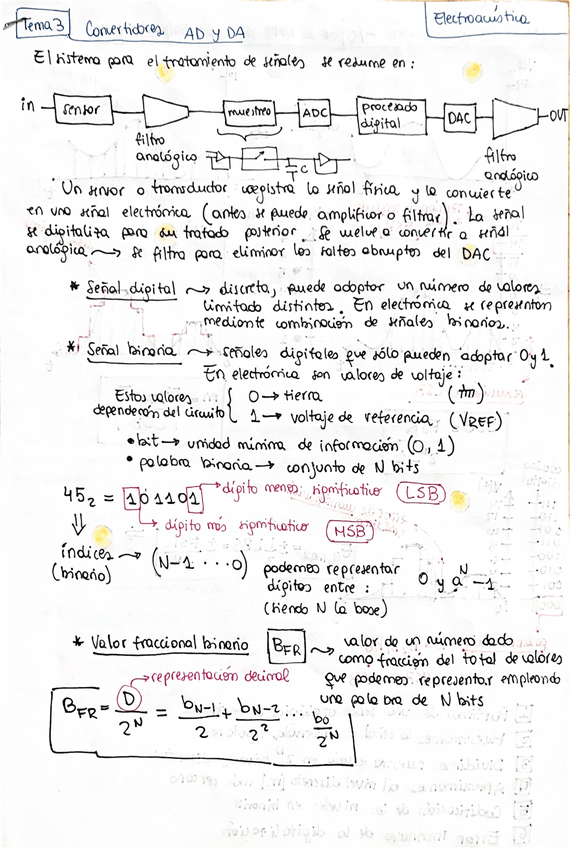 Tema 3 Convertidores AD y DA
Electroacústica
El sistema para el tratamiento de señales se resume en:
in sensor muestreo ADC procesado digital DAC OUT
filtro analógico
C
filtro analógico
Un sensor o transductor registra la señal física y la convierte
en una señal electrónica (antes se puede amplificar o filtrar). La señal
se digitaliza para su tratado posterior. Se vuelve a convertir a señal
analógica → se filtra para eliminar los saltos abruptos del DAC
* Señal digital → discreta, puede adoptar un número de valores
limitado distintos. En electrónica se representan
mediante combinación de señales binarias.
* Señal binaria → señales digitales que sólo pueden adoptar 0 y 1.
En electrónica son valores de voltaje:
Estos valores dependerán del circuito { 0 → tierra
1 → voltaje de referencia (VREF)
• bit → unidad mínima de información (0, 1)
• palabra binaria → conjunto de N bits
45₂ = 101101 → dígito menos significativo (LSB)
→ dígito más significativo (MSB)
índices → (N-1 ... 0) podemos representar
(binario) dígitos entre: 0 y a^N - 1
(siendo N la base)
* Valor fraccional binario B_FR → valor de un número dado
como fracción del total de valores
→ representación decimal que podemos representar empleando
una palabra de N bits
B_FR = D/2^N = b_N-1/2 + b_N-2/2² ... b₀/2^N